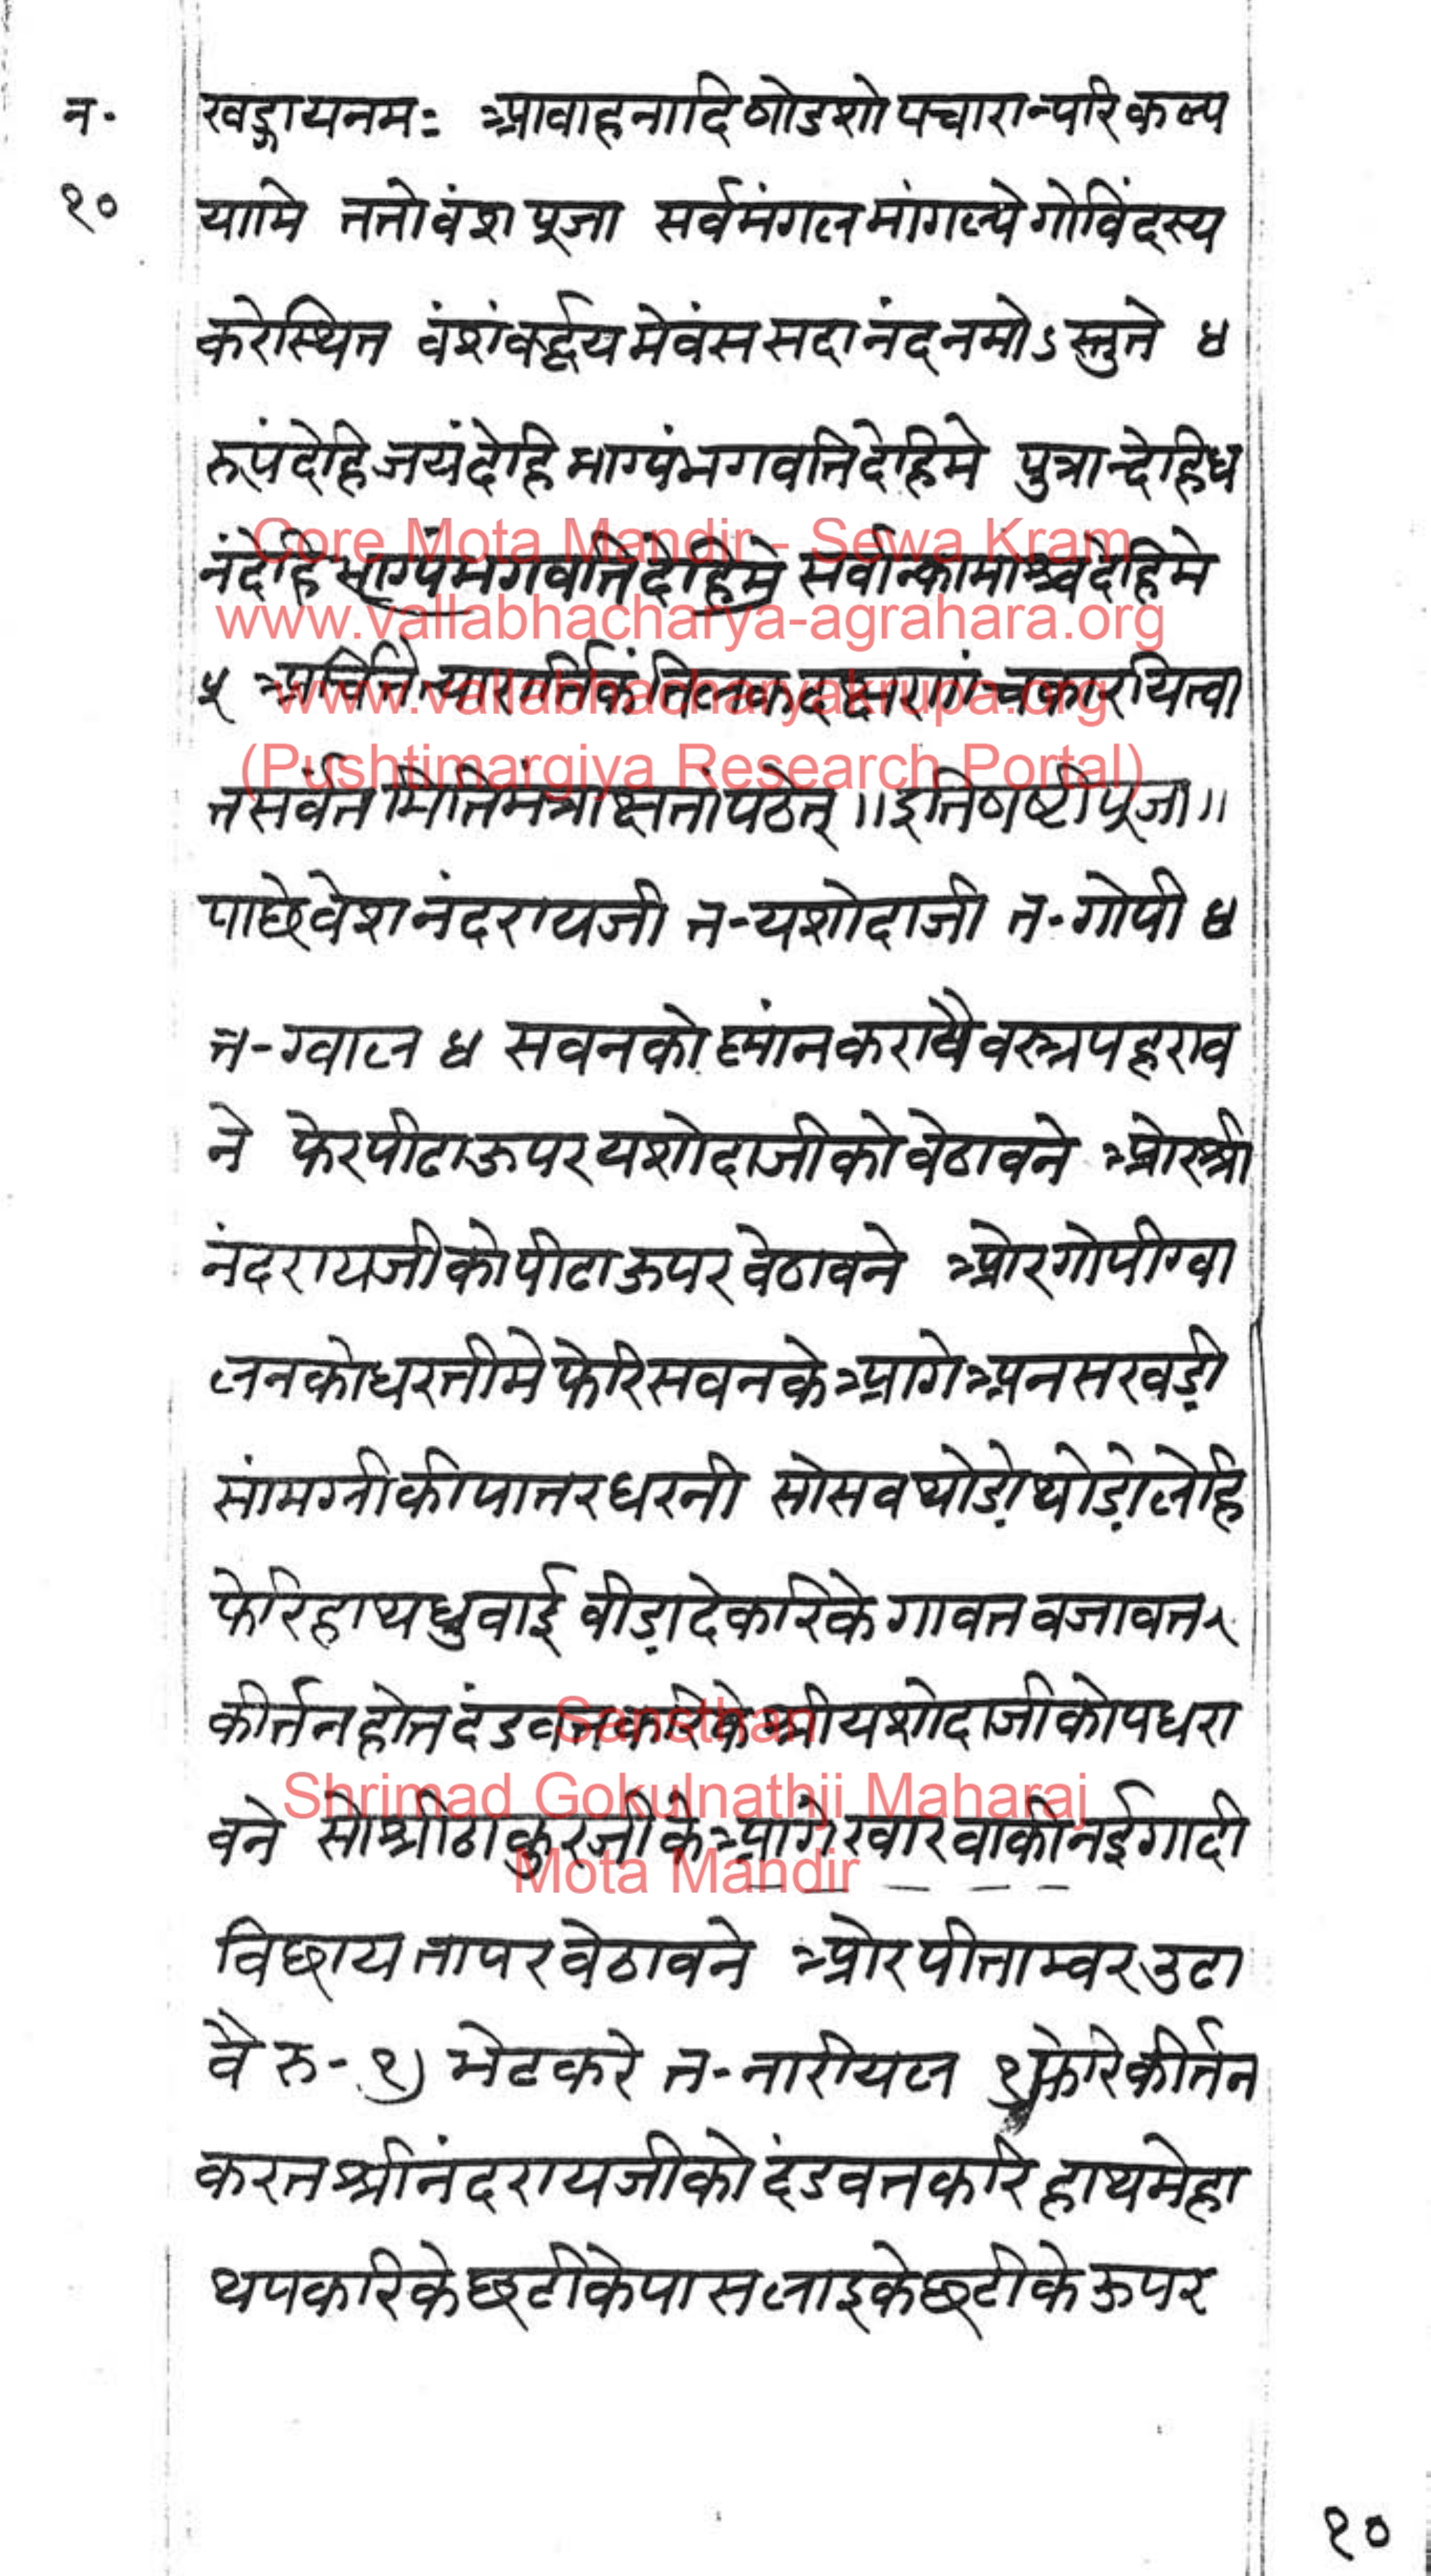 न॰
१०
खड्गायनमः आवाहनादि षोडशोपचारान्परिकल्प
यामि ततो वंश पूजा सर्वमंगल मांगल्ये गोविंदस्य
करेस्थित वंशंवर्द्धय मेवंस सदानंद नमोऽस्तुते ४
रूपंदेहि जयंदेहि भाग्यंभगवतिदेहिमे पुत्रान्देहिध
नंदेहि भाग्यंभगवतिदेहिमे सर्वान्कामांश्चदेहिमे
५
तसर्वतमितिमंत्राक्षतांपठेत् ॥इतिषष्टीपूजा॥
पाछेवेश नंदरायजी त-यशोदाजी त-गोपी ४
त-ग्वाल ४ सवनको स्नांनकरायवैवस्त्रपहराव
ने फेरपीढाऊपरयशोदाजीकोवेठावने ओरश्री
नंदरायजीकोपीढाऊपरवेठावने ओरगोपीग्वा
लनकोधरतीमे फेरिसवनकेआगेअनसखड़ी
सांमग्रीकीपातरधरनी सोसवथोड़ोथोड़ोलेहि
फेरिहाथधुवाई वीड़ादेकरिकेगावतवजावत
कीर्त्तनहोतदंडवतकरिकेश्रीयशोदाजीकोपधरा
वने सोश्रीठाकुरजीकेआगेखारवाकीनईगादी
विछायतापरवेठावने ओरपीताम्वरउढा
वै रु-१) भेटकरे त-नारीयल १)फेरिकीर्तन
करतश्रीनंदरायजीकोदंडवतकरि हाथमेहा
थपकरिकेछटीकेपासलाइकेछटीकेऊपर
१०
Core Mota Mandir - Sewa Kram
www.vallabhacharya-agrahara.org
www.vallabhacharyakrupa.org
(Pushtimargiya Research Portal)
Sansthan
Shrimad Gokulnathji Maharaj
Mota Mandir